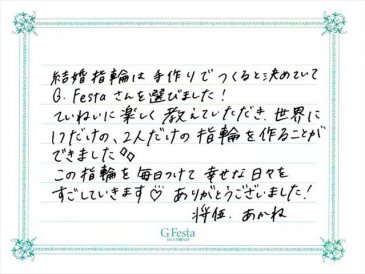 結婚指輪は手作りでつくると決めていて
G. Festa さんを選びました!
ていねいに楽しく教えていただき、世界に
1つだけの、2人だけの指輪を作ることが
できました
この指輪を毎日つけて幸せな日々を
すごしていきます♡ ありがとうございました!
将伍. あかね
G.Festa